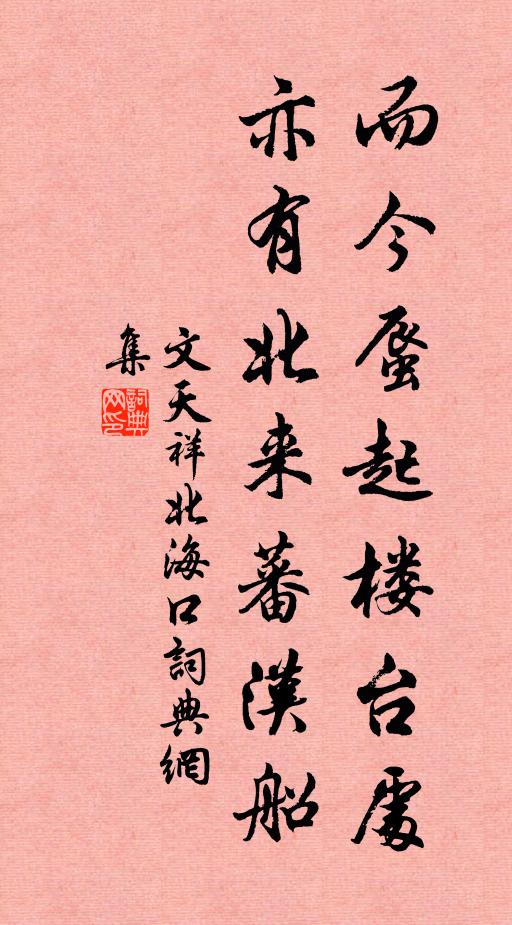 而今蜃起楼台處
亦有北来蕃漢船
文天祥北海口詞典網
集
詞典
网印